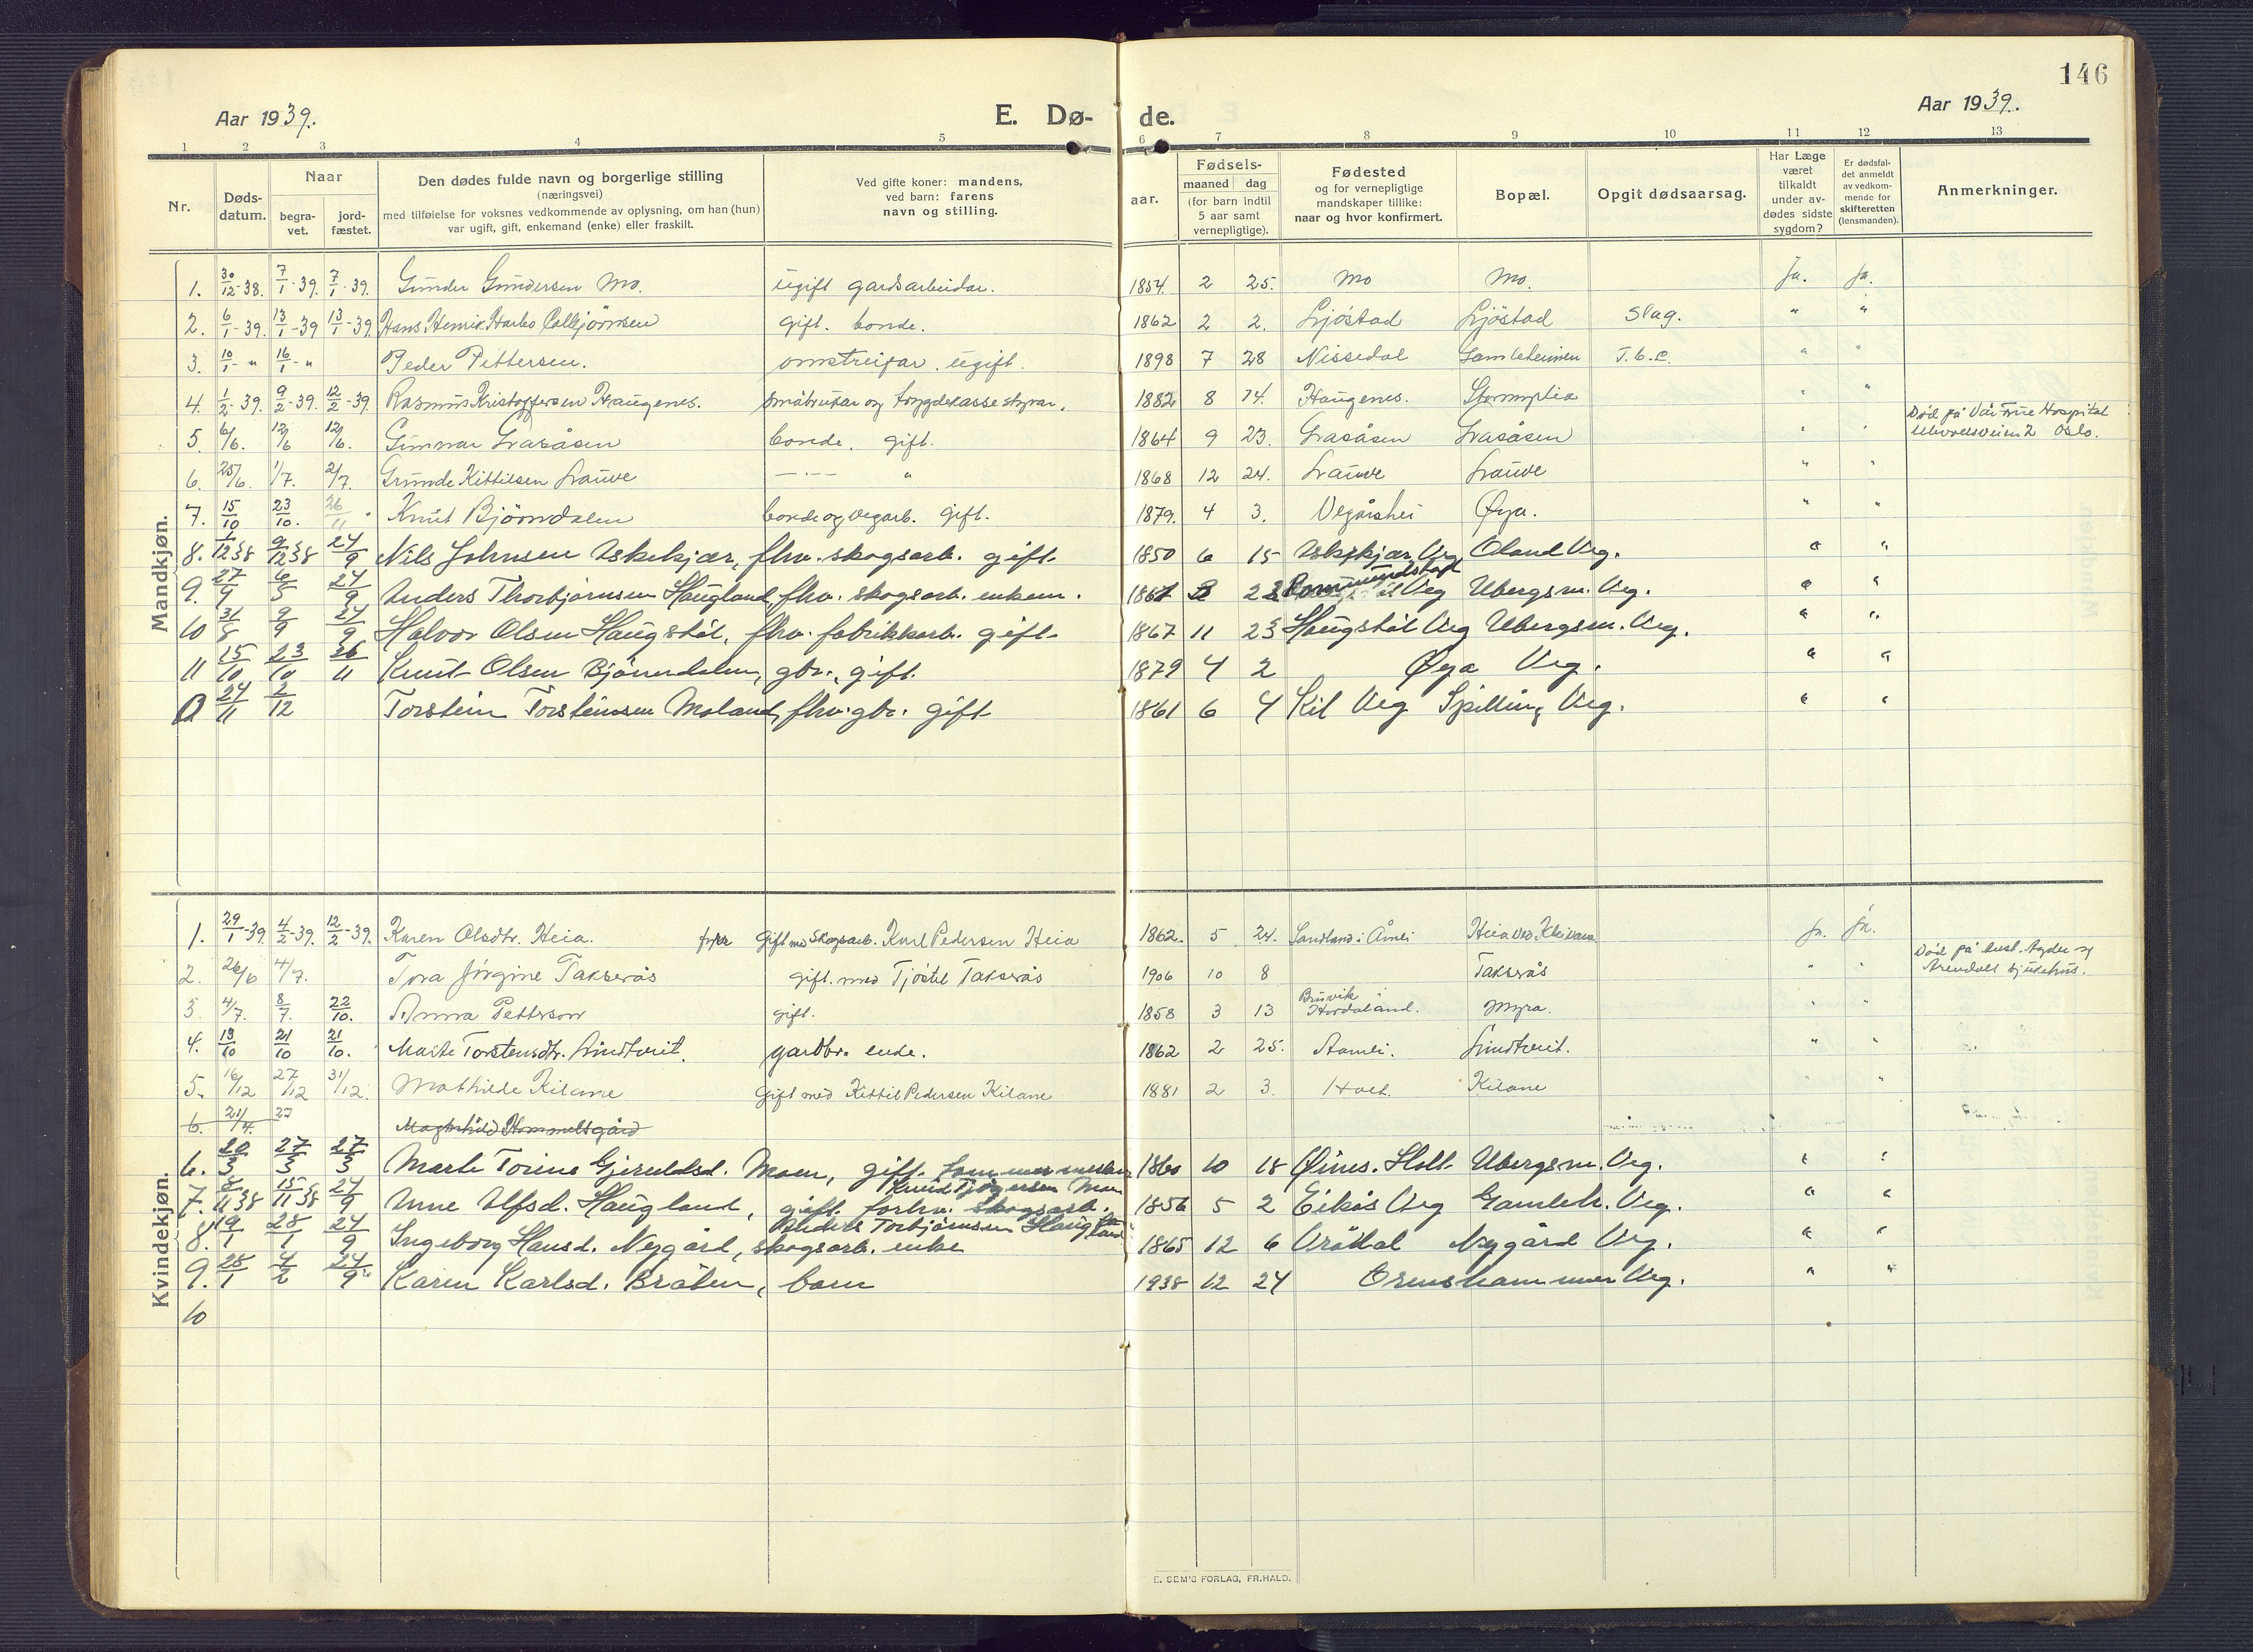 146
Aar 1939.
E. Dø-
de.
Aar 1939.
1 2 3 4 5 6 7 8 9 10 11 12 13
Nr.
Døds-
datum.
Naar
begra-
vet.
jord-
fæstet.
Den dødes fulde navn og borgerlige stilling
(næringsvei)
med tilføielse for voksnes vedkommende av oplysning, om han (hun)
var ugift, gift, enkemand (enke) eller fraskilt.
Ved gifte koner: mandens,
ved barn: farens
navn og stilling.
aar.
Fødsels-
maaned dag
(for barn indtil
5 aar samt
vernepligtige).
Fødested
og for vernepligtige
mandskaper tillike:
naar og hvor konfirmert.
Bopæl.
Opgit dødsaarsag.
Har Læge
været
tilkaldt
under av-
dødes sidste
sygdom?
Er dødsfal-
det anmeldt
av vedkom-
mende for
skifteretten
(lensmanden).
Anmerkninger.
Mandkjøn.
1. 30/12-38. 7/1-39. 7/1-39. Gunder Gundersen Mo. ugift gardsarbeidar. 1854. 2 25. Mo Mo. Ja. Ja.
2. 6/1-39. 13/1-39 13/1-39. Hans Henrik gift. bonde. 1862 2 2. Ljøstad Ljøstad Slag. " "
3. 10/1-" 16/1-" Peder Pettersen. omstreifar. ugift. 1898 7 28 Nissedal Gamleheimen T.b.c. " "
4. 1/2-39. 9/2-39. 12/2-39 Rasmus Kristoffersen Haugenes. småbrukar og trygdekasse styrar. 1882 8 14. Haugenes. " "
5. 6/6. 12/6 12/6. Gunnar Lasåsen bonde. gift. 1864 9 23. Lasåsen Lasåsen " " Død på Vår Frue Hospital
Ullevoldsveien 2 Oslo.
6. 25/6. 1/7. 2/7. Grunde Kittilsen Lauve —·— " 1868 12 24. Lauve Lauve " "
7. 15/10 23/10. 26/11 Knut Bjørndalen bonde og vegarb. gift. 1879. 4 3. Vegårshei Øya. " "
8. 1/12 38 9/12 38 24/9 Nils Johnsen Askekjær, fhv. skogsarb. gift. 1850 6 15 Askekjær Veg. Oland Veg. " "
9. 27/4 6/5 24/9 Anders Thorbjørnsen Haugland, fhv. skogsarb. enkem. 1867 2 22 Veg Ubergsm. Veg. " "
10 31/8 9/9 24/9 Halvor Olsen Haugstøl, fhv. fabrikkarb. gift. 1867 11 23 Haugstøl Veg Ubergsm. Veg. " "
11 15/10 23/10 26/11 Knut Olsen Bjørndalen, gbr., gift. 1879 4 2 Øya Veg. " "
24/11 2/12 Torstein Torsteinsen Moland, fhv. gbr. gift 1861 6 4 Kil Veg Veg. " "
Kvindekjøn.
1. 29/1-39. 4/2-39. 12/2-39. Karen Olsdtr. Heia. Gift med Skogsarb. Karl Pedersen Heia 1862. 5 24. Sandland i Åmli Heia ved Ja. Ja.
2. 26/6 4/7. Tora Jørgine Takserås gift. med Tjøstel Takserås 1906 10 8 Takserås " " Død på Aust. Agder og
Arendals sjukehus.
3. 4/7. 8/7. 22/10. Anna Petterson gift. 1858 3 13 Bruvik
Hordaland. Myra. " "
4. 13/10 21/10 21/10. Marte Torstensdtr. Lindtveit. gardbr. enke. 1862 2 25. Aamli. Lindtveit. " "
5. 16/12 27/12 31/12. Mathilde Kilane Gift med Kittil Pedersen Kilane 1881 2 3. Holt. Kilane " "
6. 21/4. 27 Magnhild Hommelsgård
6. 20/3 27/3 27/3 Marte Torine Gjeruldsd. Moen, gift. 1860 10 18 Øines. Holt Ubergsm. Veg. " "
7. 8/11 38 15/11 38 24/9 Anne Alfsd. Haugland, gift. forhv. skogsarb. 1856 5 2 Eikås Veg Gamleh. Veg. " "
Anders Torbjørnsen Haugland
8. 19/1 28/1 24/9 Ingeborg Hansd. Nygård, skogsarb. enke 1865 12 6 Nygård Veg. " "
9. 28/1 4/2 24/9 Karen Karlsd. Bråten, barn 1938 12 24 Ormshammeren Veg. " "
10
E. SEM'S FORLAG, FR.HALD.